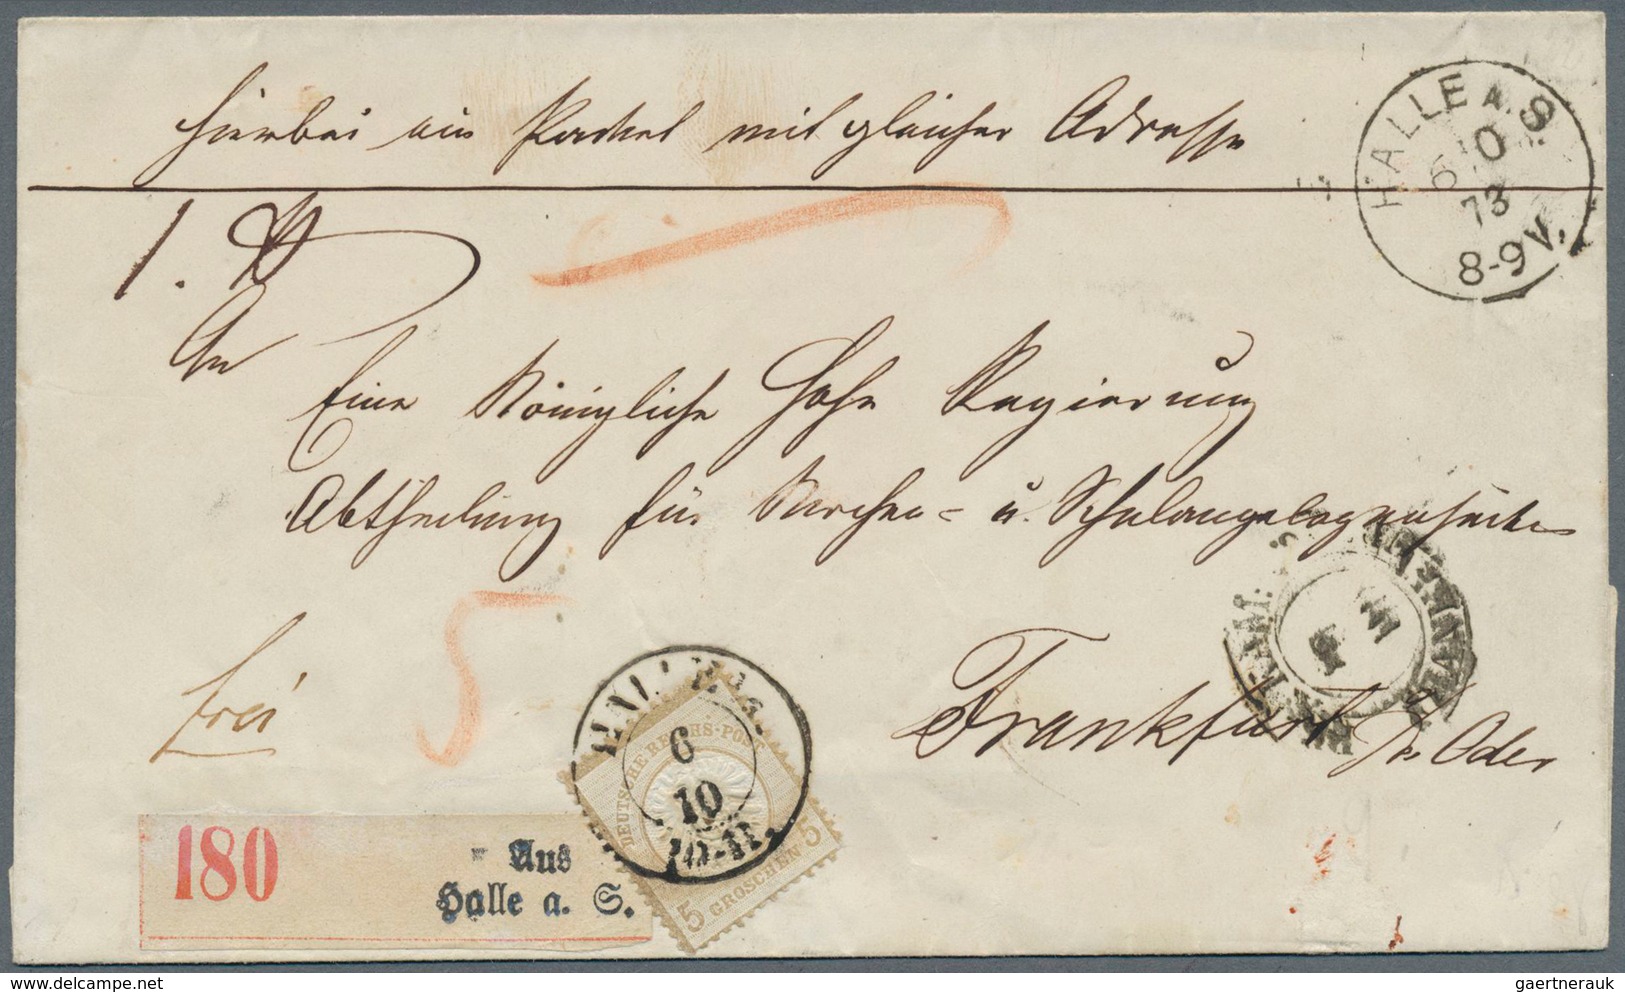 Hierbei ein Packet mit gleicher Adresse
HALLE A. S.
6 10
73
8-9 V.
1.
An
Eine Königliche Hohe Regierung
Abtheilung für Kirchen- u. Schulangelegenheiten
Frankfurt
Oder
frei
5
HALLE
6
10
10-11
DEUTSCHE REICHS-POST
5 GROSCHEN 5
180
Aus
Halle a. S.
gaertnerauk
delcampe.net